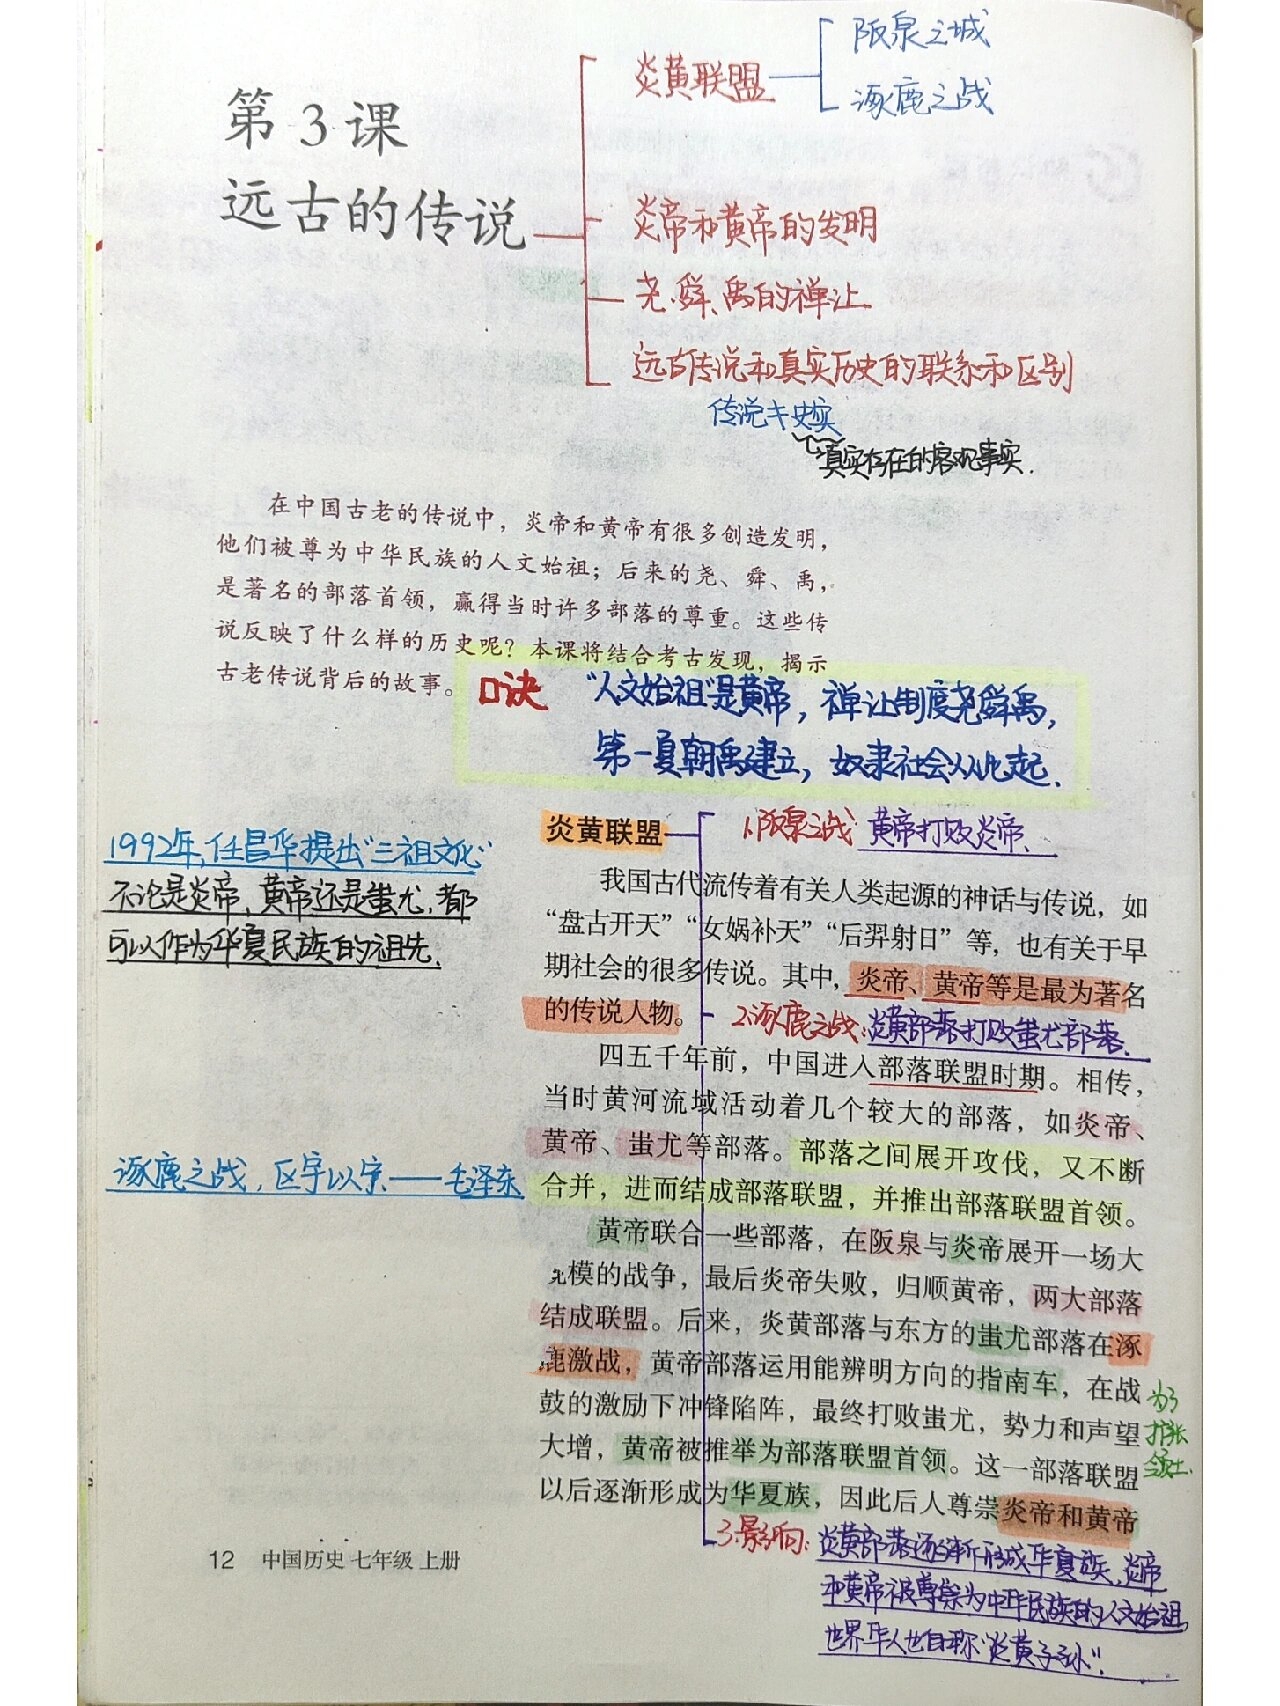 第3课
远古的传说
炎黄联盟
阪泉之城
涿鹿之战
炎帝和黄帝的发明
尧、舜、禹的禅让
远古传说和真实历史的联系和区别
传说≠史实
真实存在的客观事实.
在中国古老的传说中，炎帝和黄帝有很多创造发明，
他们被尊为中华民族的人文始祖；后来的尧、舜、禹，
是著名的部落首领，赢得当时许多部落的尊重。这些传
说反映了什么样的历史呢？本课将结合考古发现，揭示
古老传说背后的故事。
口诀 “人文始祖”是黄帝，禅让制度尧舜禹，
第一夏朝禹建立，奴隶社会从此起.
炎黄联盟
1.阪泉之战 黄帝打败炎帝.
1992年,任昌华提出“三祖文化”
不论是炎帝,黄帝还是蚩尤,都
可以作为华夏民族的祖先.
我国古代流传着有关人类起源的神话与传说，如
“盘古开天”“女娲补天”“后羿射日”等，也有关于早
期社会的很多传说。其中，炎帝、黄帝等是最为著名
的传说人物。
2.涿鹿之战:炎黄部落打败蚩尤部落.
四五千年前，中国进入部落联盟时期。相传，
当时黄河流域活动着几个较大的部落，如炎帝、
黄帝、蚩尤等部落。部落之间展开攻伐，又不断
合并，进而结成部落联盟，并推出部落联盟首领。
涿鹿之战,区宇以宁——毛泽东
黄帝联合一些部落，在阪泉与炎帝展开一场大
规模的战争，最后炎帝失败，归顺黄帝，两大部落
结成联盟。后来，炎黄部落与东方的蚩尤部落在涿
鹿激战，黄帝部落运用能辨明方向的指南车，在战
鼓的激励下冲锋陷阵，最终打败蚩尤，势力和声望
大增，黄帝被推举为部落联盟首领。这一部落联盟
以后逐渐形成为华夏族，因此后人尊崇炎帝和黄帝
为了
扩张
领土.
3.影响:炎黄部落逐渐形成华夏族,炎帝
和黄帝被尊崇为中华民族的人文始祖,
世界华人也自称“炎黄子孙”.
12 中国历史 七年级 上册